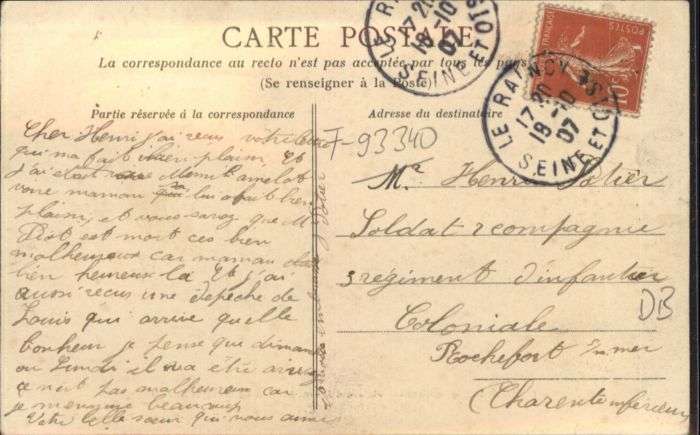 CARTE POSTALE
La correspondance au recto n'est pas acceptée par tous les pays
(Se renseigner à la Poste)
Partie réservée à la correspondance
Adresse du destinataire
LE RAINCY
17 20
18 -10
07
SEINE ET OISE
LE RAINCY
17 20
18 -10
07
SEINE ET OISE
POSTES
10
F-93340
DB
Cher Henri j'ai recus votre
qui ma fait bien plaisir, et
j'ai était
votre maman lui a fait bien
plaisir, et vous savez que M
est mort ces bien
malheureux car maman
bien heureuse la et j'ai
aussi recus une depeche de
Louis qui arrive quelle
bonheur je pense que dimanche
ou Lundi il va être
ce n'est pas malheureux car
je m'ennuie beaucoup
Votre belle sœur qui vous aime
Mr Henri
Soldat 2 compagnie
3 regiment d'infanterie
Coloniale
Rochefort s/mer
(Charente inférieure